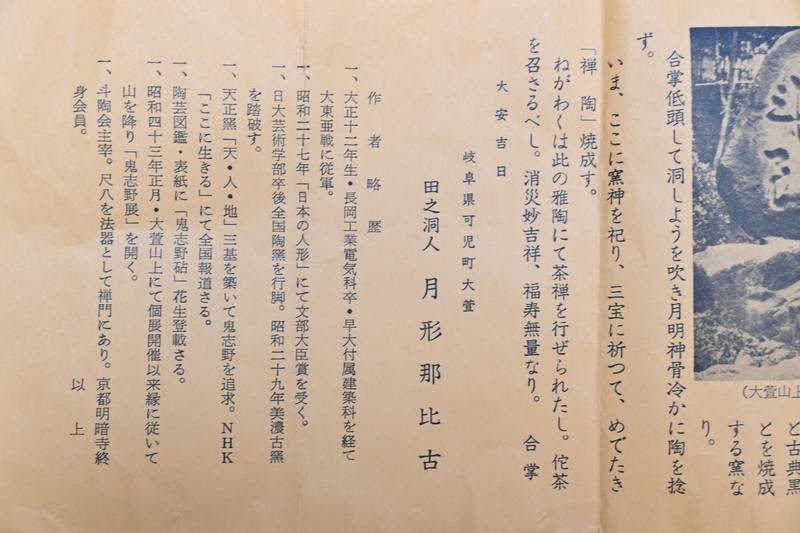 (大萱山上
と古典黒
とを焼成
する窯な
り。
合掌低頭して洞しようを吹き月明神骨冷かに陶を捻
ず。
いま、ここに窯神を祀り、三宝に祈つて、めでたき
「禅 陶」焼成す。
ねがわくは此の雅陶にて茶禅を行ぜられたし。佗茶
を召さるべし。消災妙吉祥、福寿無量なり。 合掌
大安吉日
岐阜県可児町大萱
田之洞人 月形那比古
作者略歴
一、大正十二年生・長岡工業電気科卒・早大付属建築科を経て
大東亜戦に従軍。
一、昭和二十七年「日本の人形」にて文部大臣賞を受く。
一、日大芸術学部卒後全国陶窯を行脚。昭和二十九年美濃古窯
を踏破す。
一、天正窯「天・人・地」三基を築いて鬼志野を追求。NHK
「ここに生きる」にて全国報道さる。
一、陶芸図鑑・表紙に「鬼志野砧」花生登載さる。
一、昭和四十三年正月・大萱山上にて個展開催以来縁に従いて
山を降り「鬼志野展」を開く。
一、斗陶会主宰。尺八を法器として禅門にあり。京都明暗寺終
身会員。
以上